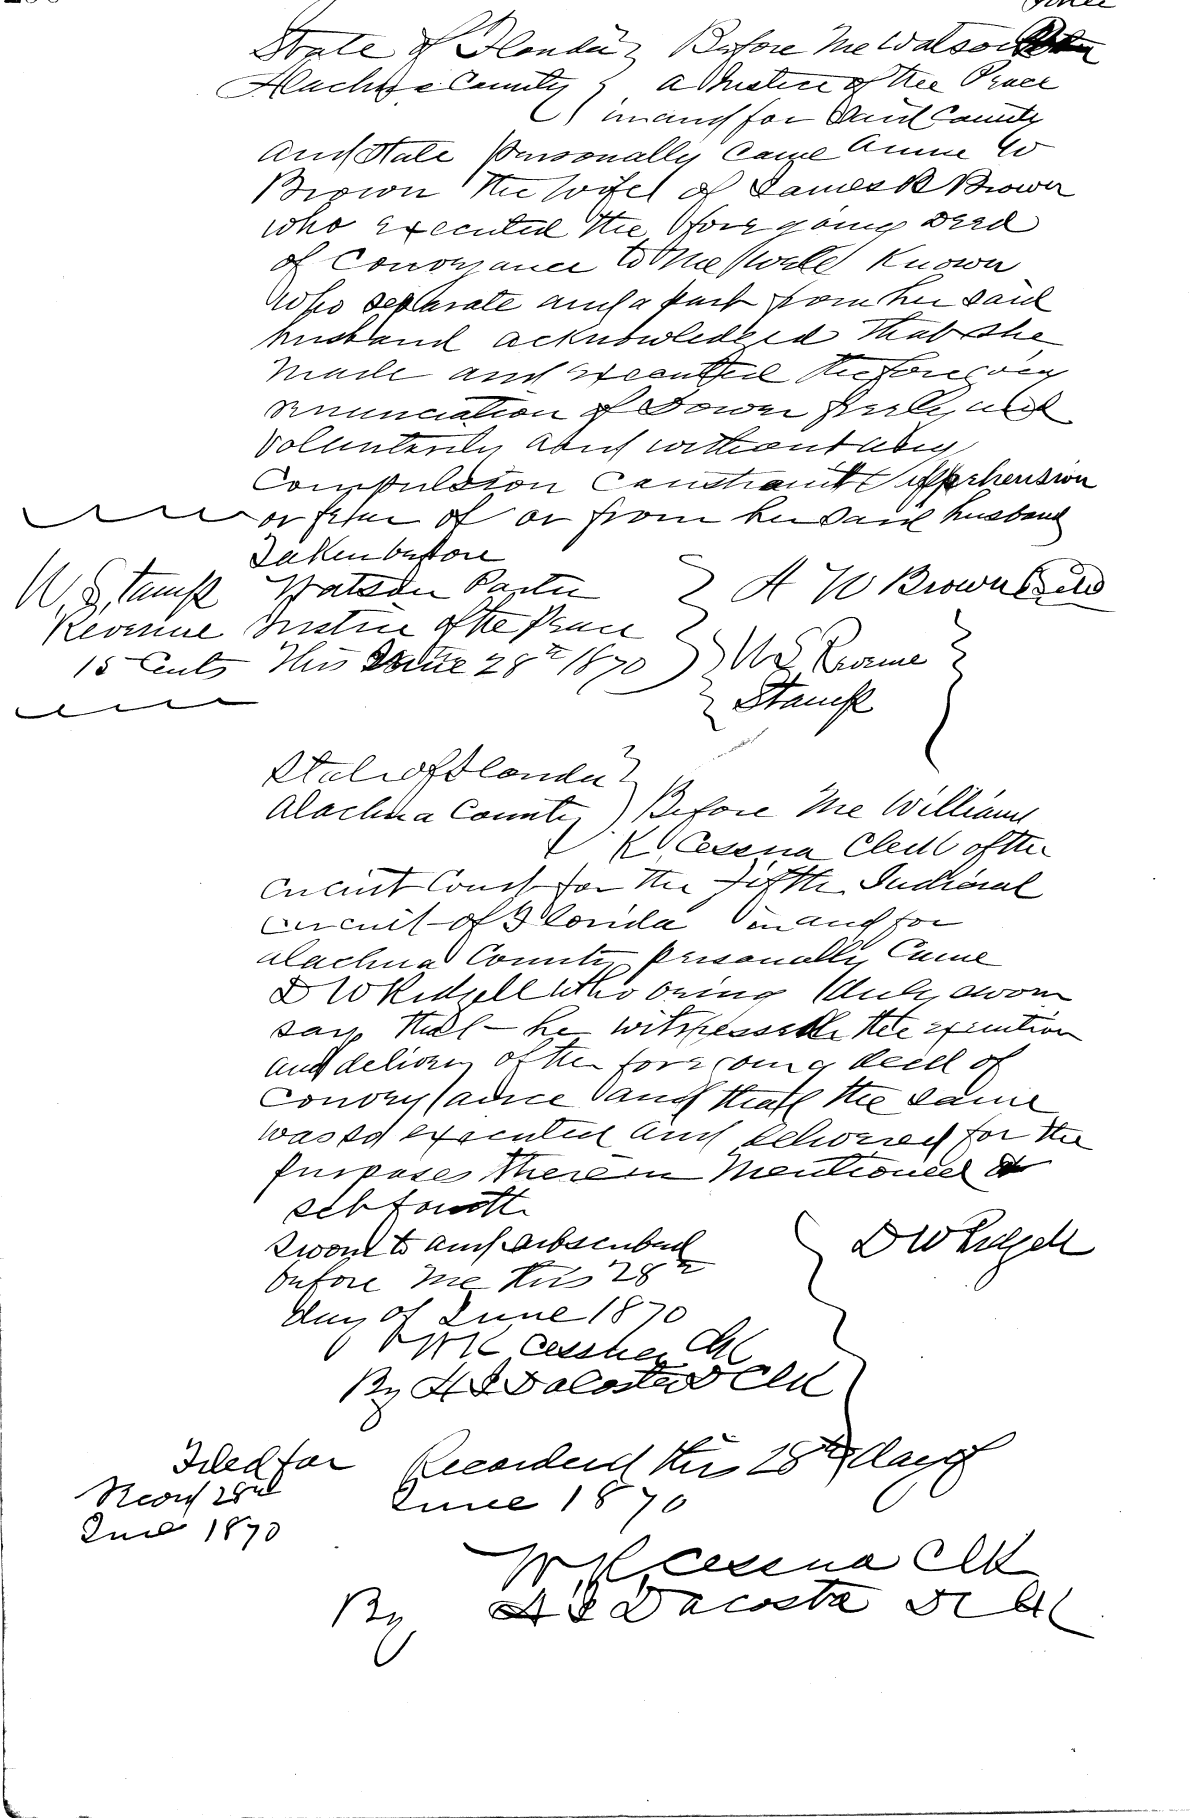 State of Florida } Before Me Watson
Alachua County } a Justice of the Peace
in and for Said County
and State personally Came Annie W
Brown the Wife of James R Brown
who executed the foregoing Deed
of Conveyance to Me well Known
Who separate and apart from her said
husband acknowledged that she
Made and executed the foregoing
renunciation of Dower freely and
Voluntarily and without any
Compulsion Constraint apprehension
or fear of or from her said husband
Taken before
U.S. Stamp Watson Porter } A W Brown Seal
Revenue Justice of the Peace
15 Cents This June 28th 1870 } U S Revenue
Stamp
State of Florida }
Alachua County } Before Me William
K Cessna Clerk of the
Circuit Court for the fifth Judicial
Circuit of Florida in and for
Alachua County personally Came
D W Ridgell Who being duly sworn
says that he witnessed the execution
and delivery of the foregoing deed of
Conveyance and that the same
was so executed and delivered for the
purposes therein Mentioned &
set fourth
Sworn to and subscribed } D W Ridgell
before Me this 28th
day of June 1870
W K Cessna Clk
By H S Dacosta D Clk
Filed for Recorded this 28th day of
Record 28th June 1870
June 1870
W K Cessna Clk
By H S Dacosta D Clk